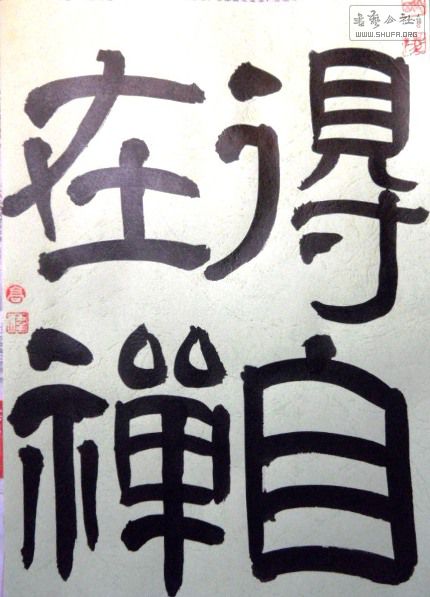 得自
在禪
書藝公社
WWW.SHUFA.ORG